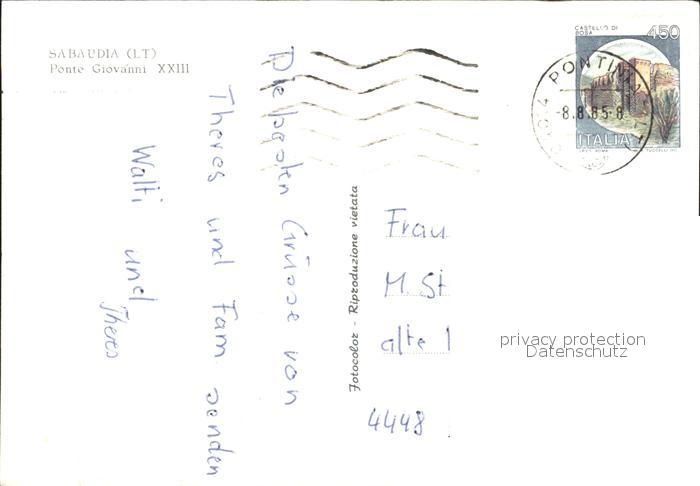 SABAUDIA (LT)
Ponte Giovanni XXIII
Die besten Grüsse von
Theres und Fam. senden
Walti und
Theres
Fotocolor - Riproduzione vietata
CASTELLO DI
BOSA
450
ITALIA
PONTIN
-8.8.85-8
Frau
M. St
alte
4448
privacy protection
Datenschutz